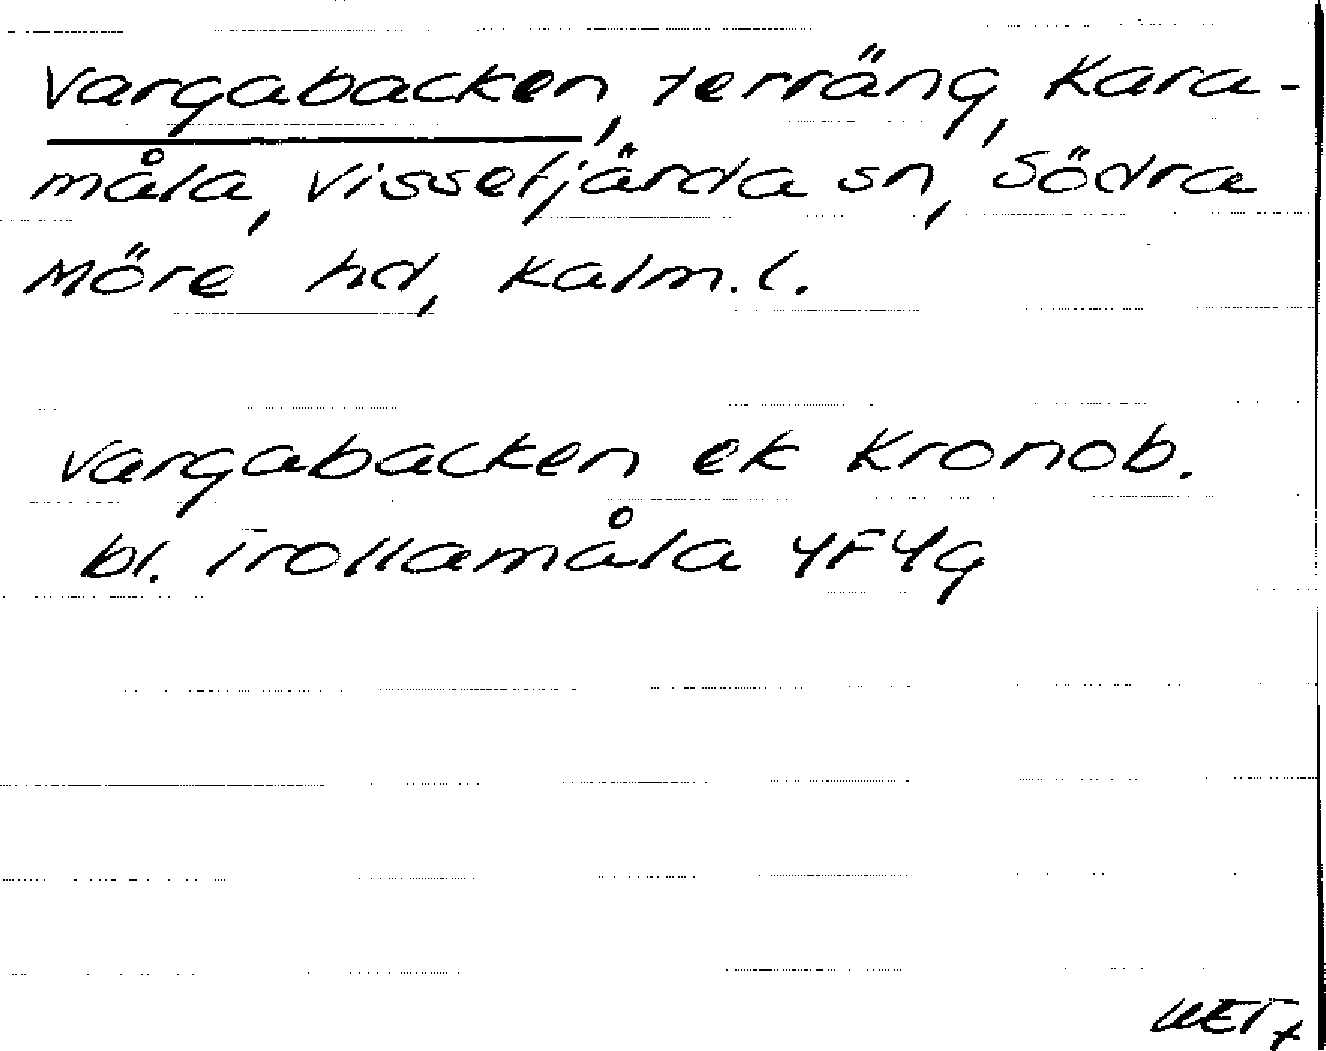 Vargabacken, terräng, Kara-
måla, Vissefjärda sn, Södra
Möre hd, Kalm. l.
Vargabacken ek Kronob.
bl. Trollamåla 4F4g